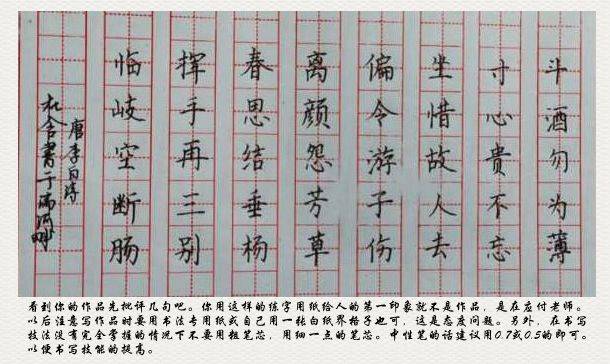 斗酒勿为薄
寸心贵不忘
坐惜故人去
偏令游子伤
离颜怨芳草
春思结垂杨
挥手再三别
临岐空断肠
唐李白诗
書于
看到你的作品先批评几句吧。你用这样的练字用纸给人的第一印象就不是作品，是在应付老师。
以后注意写作品时要用书法专用纸或自己用一张白纸界格子也可，这是态度问题。另外，在书写
技法没有完全掌握的情况下不要用粗笔芯，用细一点的笔芯。中性笔的话建议用0.7或0.5的即可。
以便书写技能的提高。